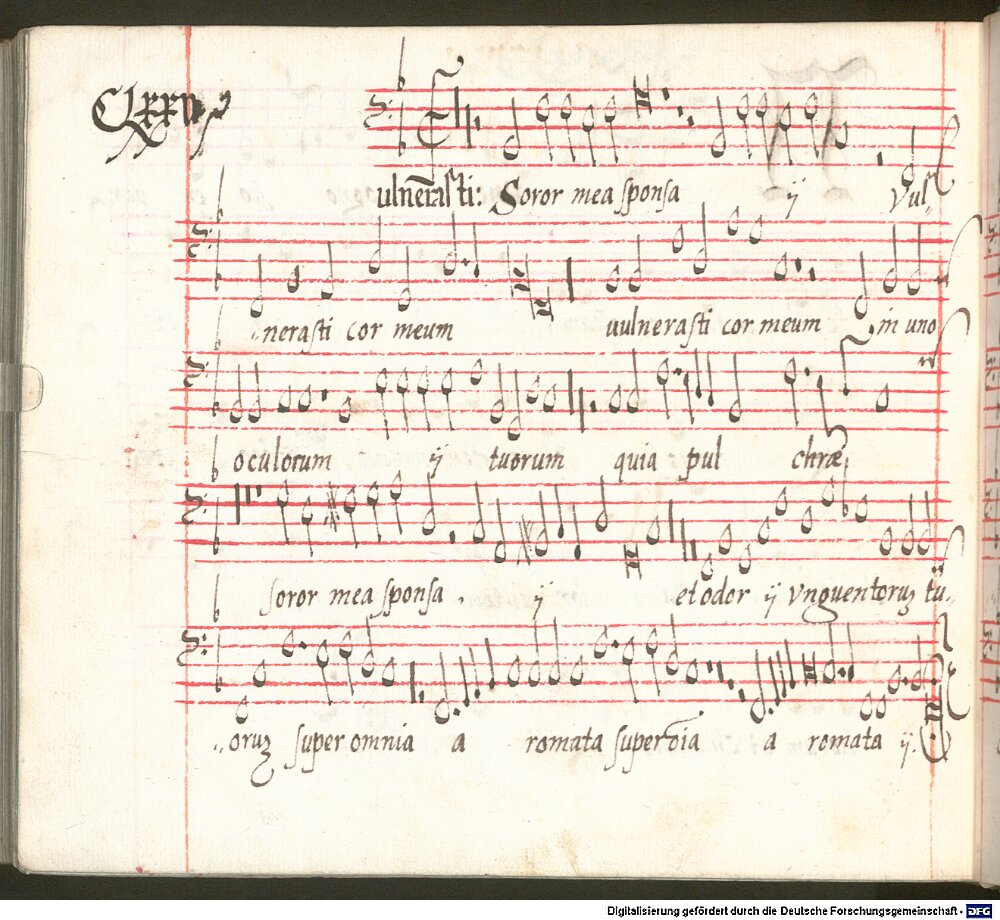 ulnerasti: Soror mea sponsa ij Vul„
„nerasti cor meum uulnerasti cor meum in uno
oculorum ij tuorum quia pul chræ,
soror mea sponsa . ij et odor ij vnguentoruz tu„
„oruz super omnia a romata super oīa a romata ij.
Digitalisierung gefördert durch die Deutsche Forschungsgemeinschaft - DFG